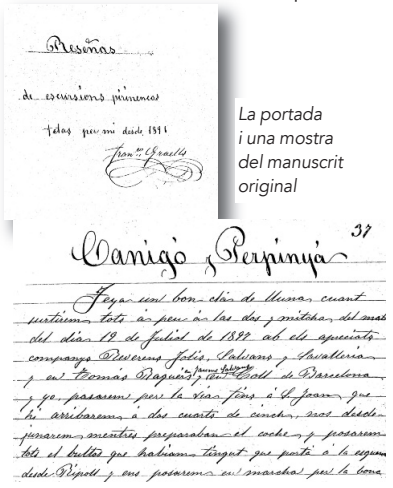 Reseñas
de escursions pirinencas
fetas per mi desde 1891
Fran.co Graells
La portada
i una mostra
del manuscrit
original
37
Canigó y Perpinyá
Feya un bon clar de lluna cuant
surtirem tots á peu á las dos y mitcha del mati
del dia 19 de Juliol de 1897 ab els apreciats
companys Reverens Jolis, Salvans y Cavalleria
en Jaume Salvans
y en Tomás Raguer y en Coll de Barcelona
y yo. pasarem per la via fins á S. Joan, que
hi arribarem á dos cuarts de cinch, nos desde-
junarem mentres preparaban el coche y posarem
tots el bultos que habiam tingut que portá á la esquena
desde Ripoll y ens posarem en marcha per la bona